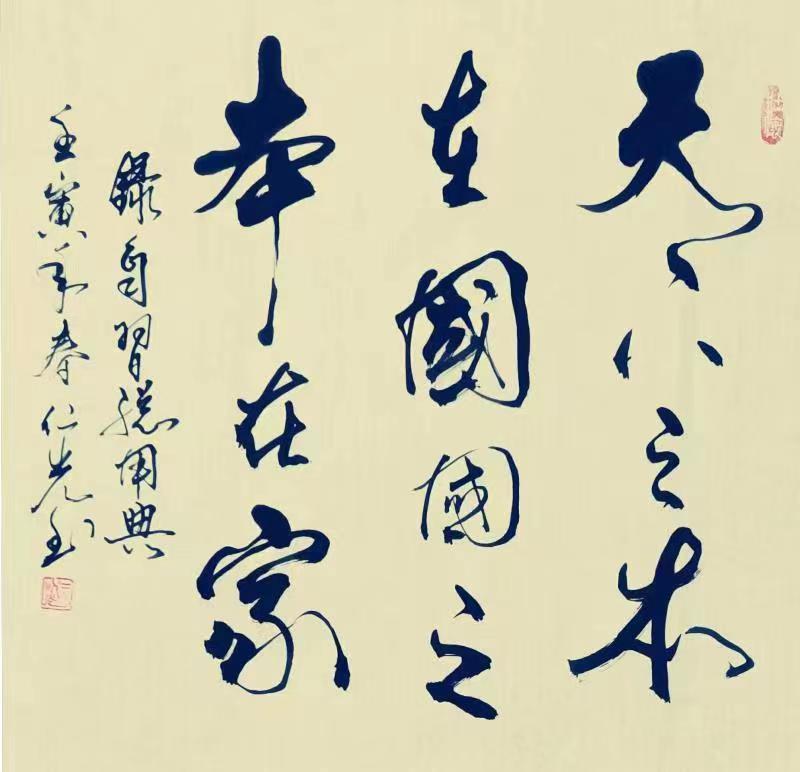 天下之本
在國國之
本在家
錄自習總用典
壬寅年春仁光书